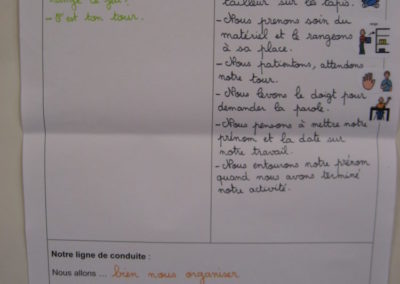 range le jeu.
- C'est ton tour.
tailleur sur les tapis.
- Nous prenons soin du
matériel et le rangeons
à sa place.
- Nous patientons, attendons
notre tour.
- Nous levons le doigt pour
demander la parole.
- Nous pensons à mettre notre
prénom et la date sur
notre travail.
- Nous entourons notre prénom
quand nous avons terminé
notre activité.
Notre ligne de conduite :
Nous allons ... bien nous organiser